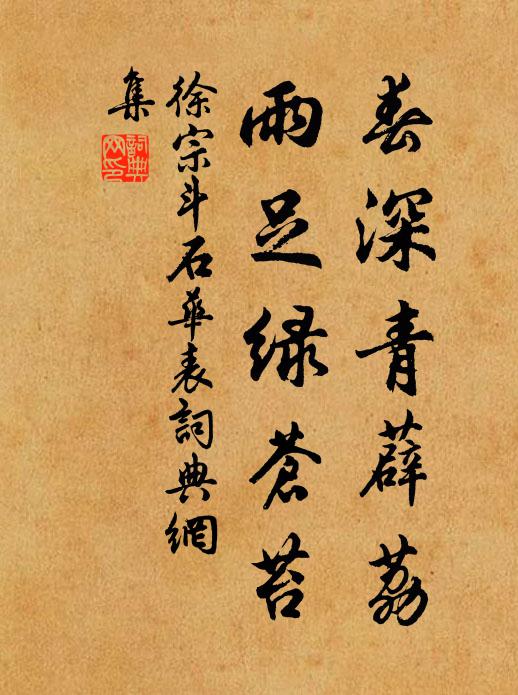 春深青薜荔
雨足绿蒼苔
徐宗斗石華表詞典網
集
詞典
网印